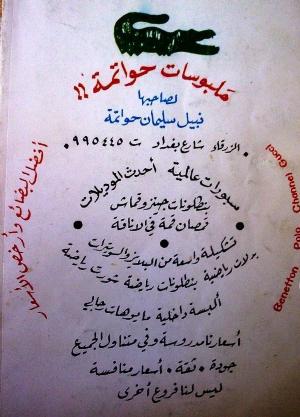 ملبوسات حواتمة !!
لصاحبها
نبيل سليمان حواتمة
الزرقاء شارع بغداد ت ٩٩٥٤٤٥
ستورات عالمية أحدث الموديلات
بنطلونات جينز وقماش
قمصان قمة في الاناقة
تشكيلة واسعة من البلايز والسترات
بدلات رياضية بنطلونات رياضية شورت رياضية
ألبسة داخلية مايوهات جابي
أسعارنا مدروسة وفي متناول الجميع
جودة • ثقة • أسعار منافسة
ليس لنا فروع أخرى
أفضل البضائع وأرخص الأسعار
Benetton Polo Channel Gucci